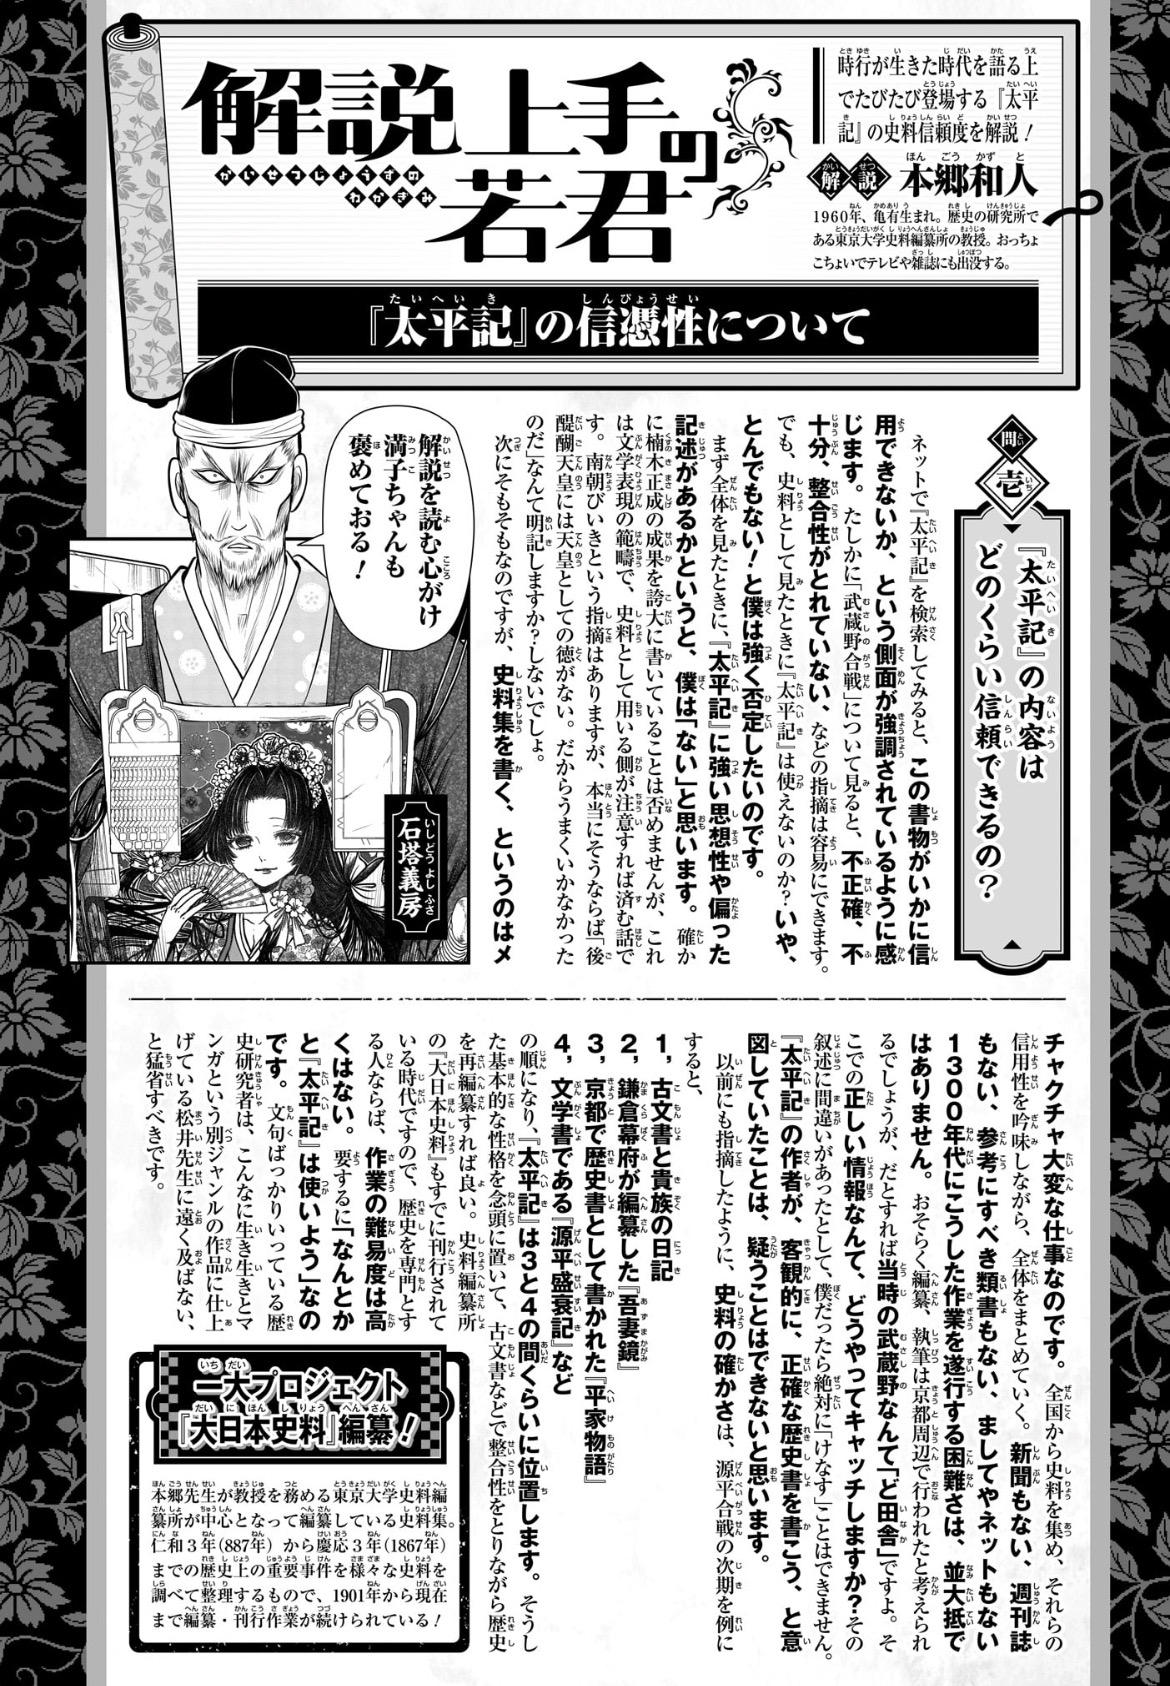 解説上手の
若君
かいせつじょうずの
わかぎみ
時行が生きた時代を語る上
でたびたび登場する『太平
記』の史料信頼度を解説！
解説 本郷和人
1960年、亀有生まれ。歴史の研究所で
ある東京大学史料編纂所の教授。おっちょ
こちょいでテレビや雑誌にも出没する。
『太平記』の信憑性について
問壱
『太平記』の内容は
どのくらい信頼できるの？
ネットで『太平記』を検索してみると、この書物がいかに信
用できないか、という側面が強調されているように感
じます。たしかに「武蔵野合戦」について見ると、不正確、不
十分、整合性がとれていない、などの指摘は容易にできます。
でも、史料として見たときに『太平記』は使えないのか？いや、
とんでもない！と僕は強く否定したいのです。
まず全体を見たときに、『太平記』に強い思想性や偏った
記述があるかというと、僕は「ない」と思います。確か
に楠木正成の成果を誇大に書いていることは否めませんが、これ
は文学表現の範疇で、史料として用いる側が注意すれば済む話で
す。南朝びいきという指摘はありますが、本当にそうならば「後
醍醐天皇には天皇としての徳がない。だからうまくいかなかった
のだ」なんて明記しますか？しないでしょ。
次にそもそもなのですが、史料集を書く、というのはメ
解説を読む心がけ
満子ちゃんも
褒めておる！
石塔義房
チャクチャ大変な仕事なのです。全国から史料を集め、それらの
信用性を吟味しながら、全体をまとめていく。新聞もない、週刊誌
もない、参考にすべき類書もない、ましてやネットもない
1300年代にこうした作業を遂行する困難さは、並大抵で
はありません。おそらく編纂、執筆は京都周辺で行われたと考えられ
るでしょうが、だとすれば当時の武蔵野なんて「ど田舎」ですよ。そ
こでの正しい情報なんて、どうやってキャッチしますか？その
叙述に間違いがあったとして、僕だったら絶対に「けなす」ことはできません。
『太平記』の作者が、客観的に、正確な歴史書を書こう、と意
図していたことは、疑うことはできないと思います。
以前にも指摘したように、史料の確かさは、源平合戦の次期を例に
すると、
1，古文書と貴族の日記
2，鎌倉幕府が編纂した『吾妻鏡』
3，京都で歴史書として書かれた『平家物語』
4，文学書である『源平盛衰記』など
の順になり、『太平記』は3と4の間くらいに位置します。そうし
た基本的な性格を念頭に置いて、古文書などで整合性をとりながら歴史
を再編纂すれば良い。史料編纂所
の『大日本史料』もすでに刊行されて
いる時代ですので、歴史を専門とす
る人ならば、作業の難易度は高
くはない。要するに「なんとか
と『太平記』は使いよう」なの
です。文句ばっかりいっている歴
史研究者は、こんなに生き生きとマ
ンガという別ジャンルの作品に仕上
げている松井先生に遠く及ばない、
と猛省すべきです。
一大プロジェクト
『大日本史料』編纂！
本郷先生が教授を務める東京大学史料編
纂所が中心となって編纂している史料集。
仁和３年（887年）から慶応３年（1867年）
までの歴史上の重要事件を様々な史料を
調べて整理するもので、1901年から現在
まで編纂・刊行作業が続けられている！